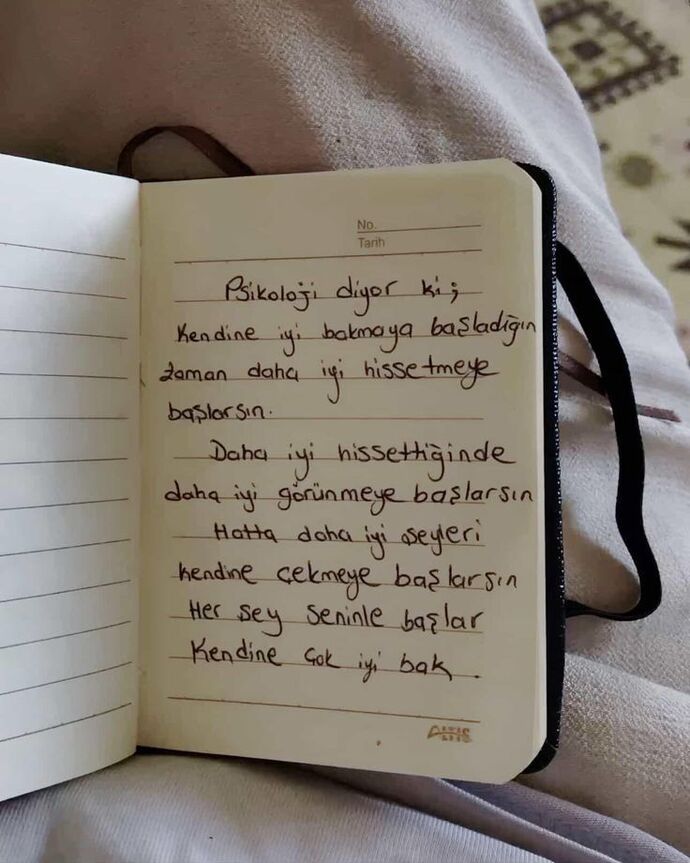 No.
Tarih
Psikoloji diyor ki;
Kendine iyi bakmaya başladığın
zaman daha iyi hissetmeye
başlarsın.
Daha iyi hissettiğinde
daha iyi görünmeye başlarsın
Hatta daha iyi şeyleri
kendine çekmeye başlarsın
Her şey seninle başlar
Kendine çok iyi bak.